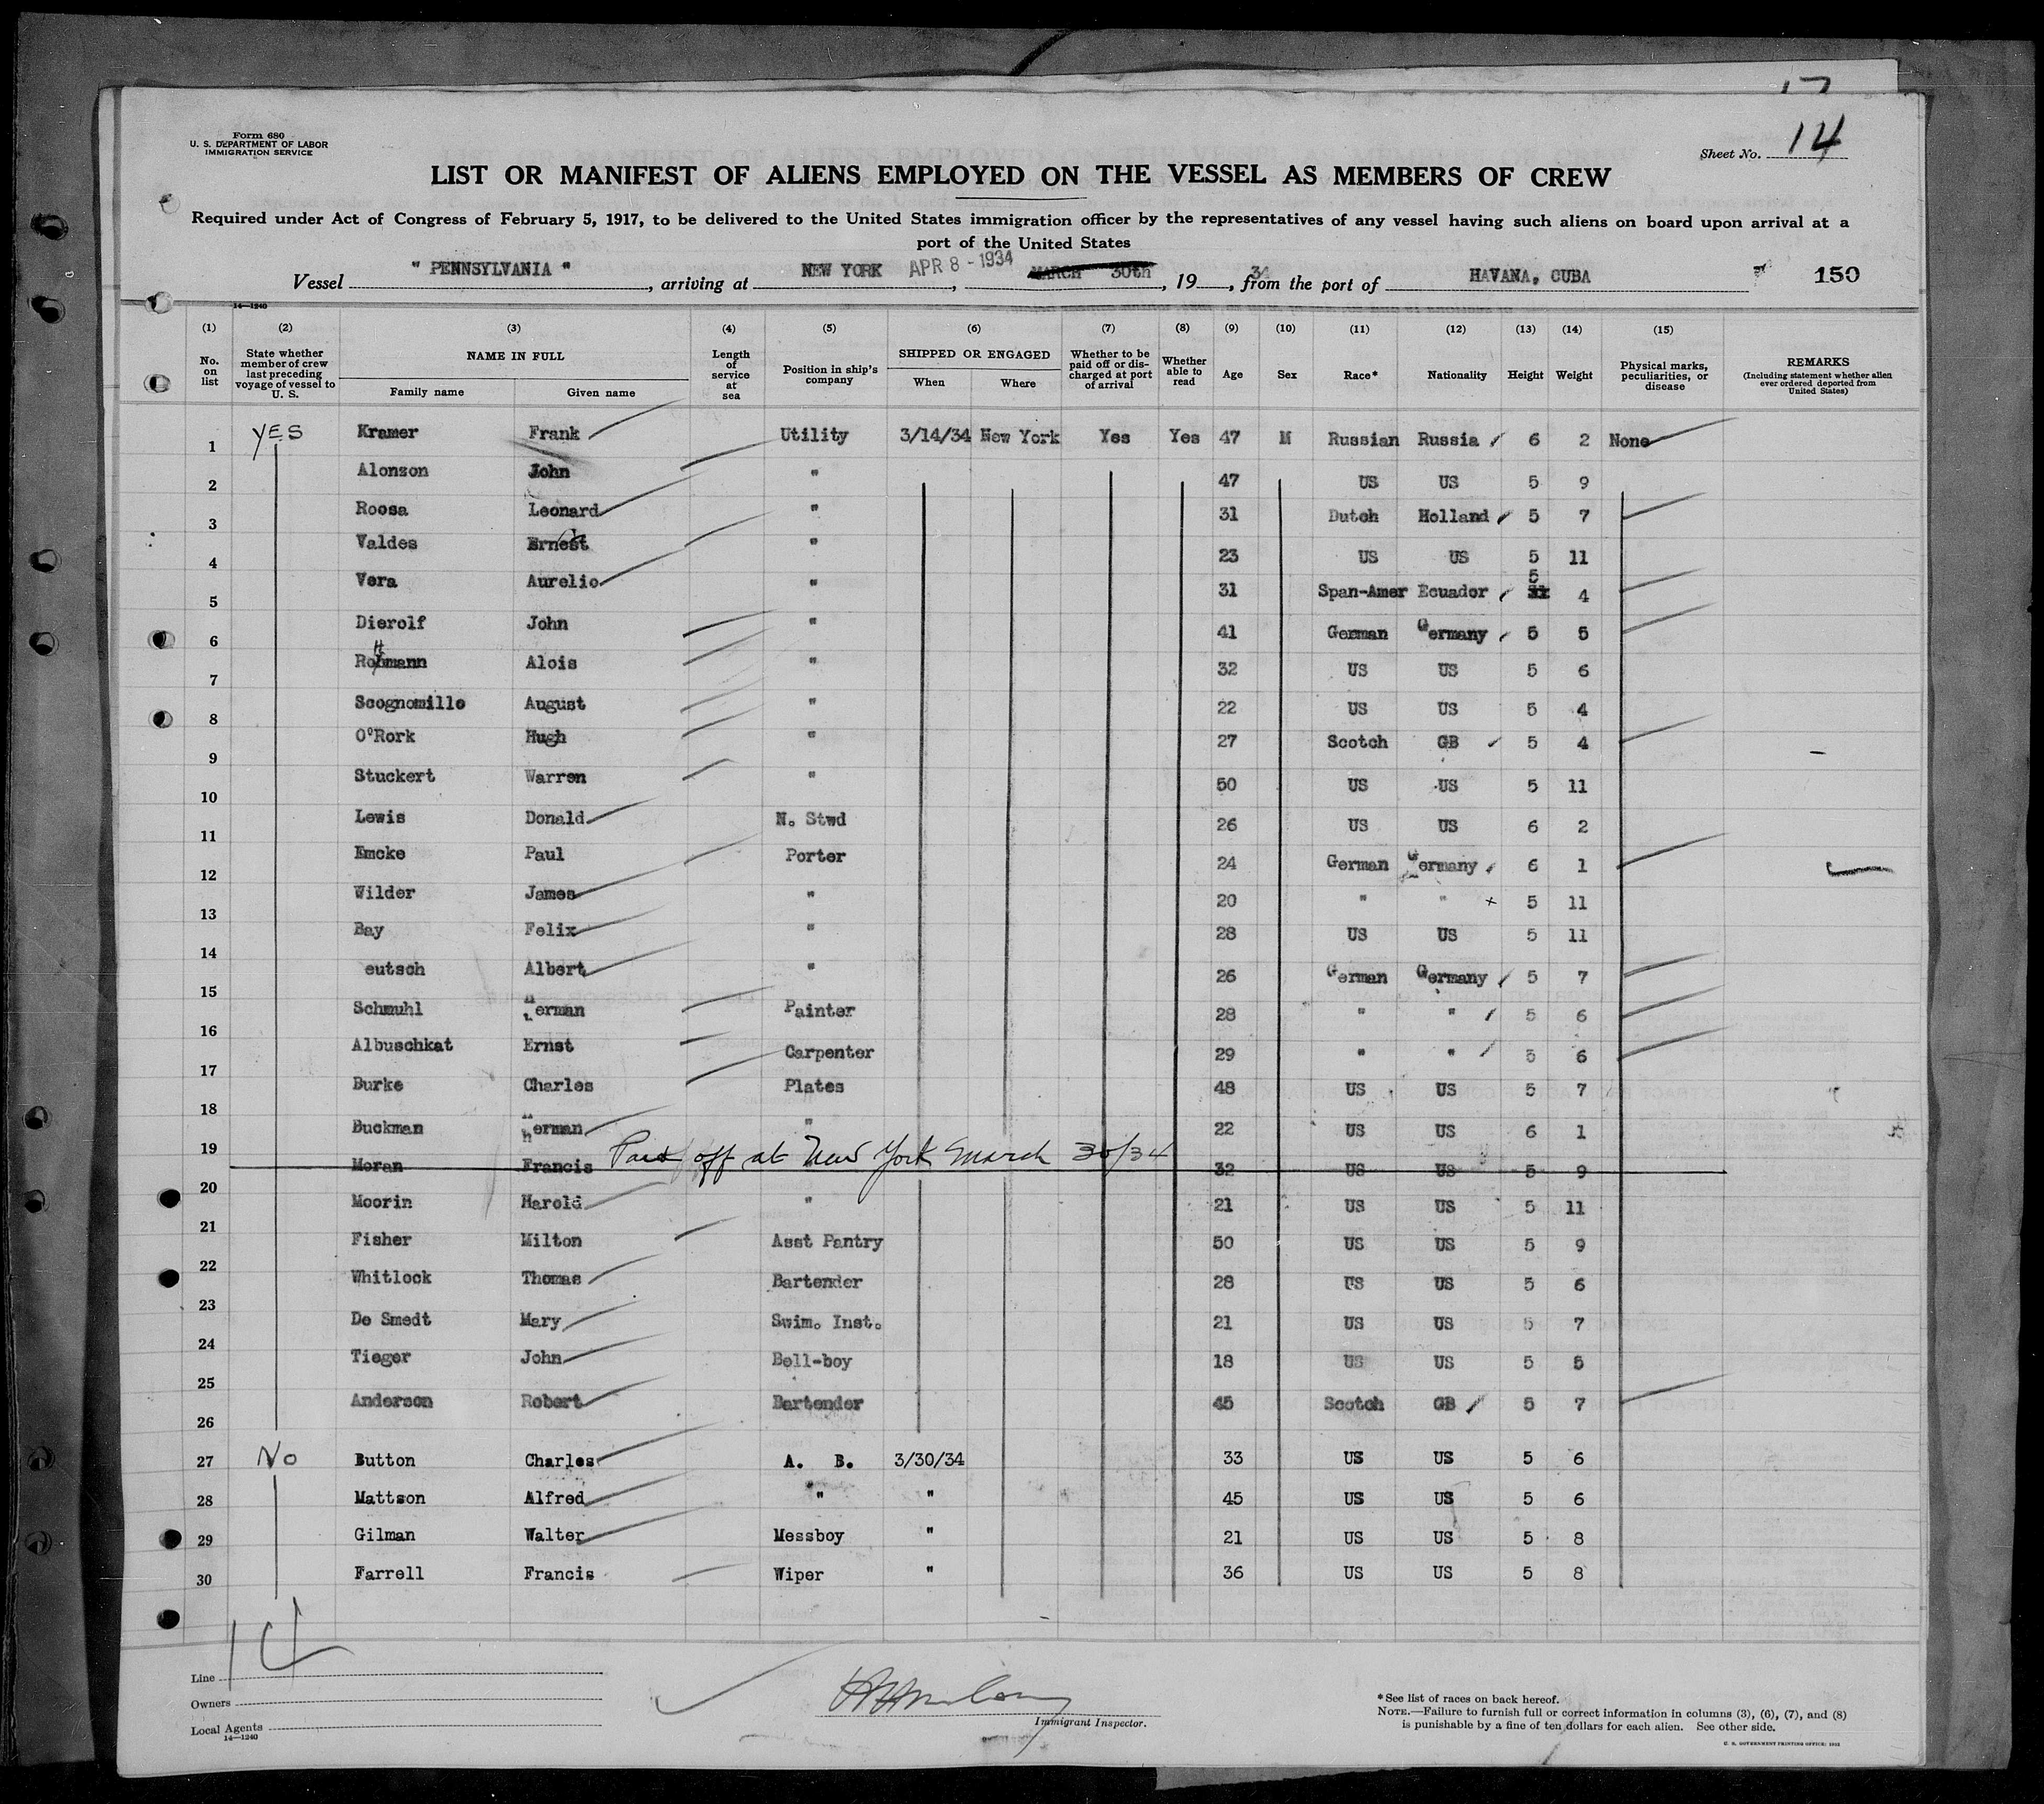 17
14
Form 680
U. S. DEPARTMENT OF LABOR
IMMIGRATION SERVICE
Sheet No. 14
LIST OR MANIFEST OF ALIENS EMPLOYED ON THE VESSEL AS MEMBERS OF CREW
Required under Act of Congress of February 5, 1917, to be delivered to the United States immigration officer by the representatives of any vessel having such aliens on board upon arrival at a
port of the United States
Vessel " PENNSYLVANIA ", arriving at NEW YORK APR 8 - 1934, MARCH 30th, 1934, from the port of HAVANA, CUBA 150
14—1240
(1) (2) (3) (4) (5) (6) (7) (8) (9) (10) (11) (12) (13) (14) (15)
No. on list State whether member of crew last preceding voyage of vessel to U. S. NAME IN FULL Family name Given name Length of service at sea Position in ship's company SHIPPED OR ENGAGED When Where Whether to be paid off or discharged at port of arrival Whether able to read Age Sex Race* Nationality Height Weight Physical marks, peculiarities, or disease REMARKS (Including statement whether alien ever ordered deported from United States)
1 YES Kramer Frank Utility 3/14/34 New York Yes Yes 47 M Russian Russia 6 2 None
2 Alonzon John " 47 US US 5 9
3 Roosa Leonard " 31 Dutch Holland 5 7
4 Valdes Ernest " 23 US US 5 11
5 Vera Aurelio " 31 Span-Amer Ecuador 5 4
6 Dierolf John " 41 German Germany 5 5
7 Rohmann Alois " 32 US US 5 6
8 Scognomillo August " 22 US US 5 4
9 O'Rork Hugh " 27 Scotch GB 5 4
10 Stuckert Warren " 50 US US 5 11
11 Lewis Donald N. Stwd 26 US US 6 2
12 Emcke Paul Porter 24 German Germany 6 1
13 Wilder James " 20 " " x 5 11
14 Bay Felix " 28 US US 5 11
15 eutsch Albert " 26 German Germany 5 7
16 Schmuhl Herman Painter 28 " " 5 6
17 Albuschkat Ernst Carpenter 29 " " 5 6
18 Burke Charles Plates 48 US US 5 7
19 Buckman Herman " 22 US US 6 1
20 Moran Francis Paid off at New York March 30/34 32 US US 5 9
21 Moorin Harold " 21 US US 5 11
22 Fisher Milton Asst Pantry 50 US US 5 9
23 Whitlock Thomas Bartender 28 US US 5 6
24 De Smedt Mary Swim. Inst. 21 US US 5 7
25 Tieger John Bell-boy 18 US US 5 5
26 Anderson Robert Bartender 45 Scotch GB 5 7
27 No Button Charles A. B. 3/30/34 33 US US 5 6
28 Mattson Alfred " " 45 US US 5 6
29 Gilman Walter Messboy " 21 US US 5 8
30 Farrell Francis Wiper " 36 US US 5 8
14
Line
Owners
Local Agents
14—1240
Immigrant Inspector.
*See list of races on back hereof.
NOTE.—Failure to furnish full or correct information in columns (3), (6), (7), and (8)
is punishable by a fine of ten dollars for each alien. See other side.
U. S. GOVERNMENT PRINTING OFFICE: 1932